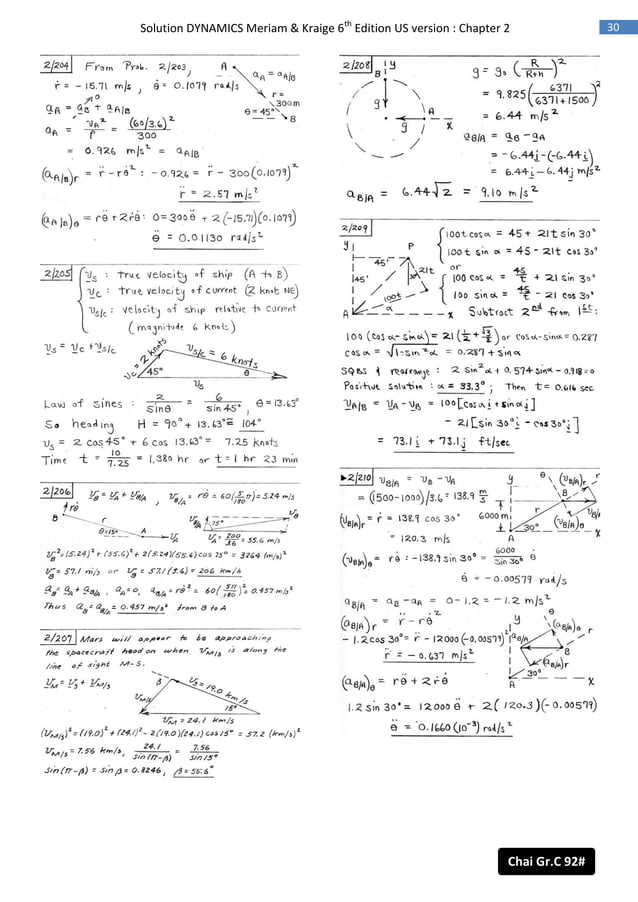 Solution DYNAMICS Meriam & Kraige 6th Edition US version : Chapter 2
30
2/204 From Prob. 2/203,
ṙ = - 15.71 m/s , θ̇ = 0.1079 rad/s
A
a_A = a_A/B
r = 300 m
θ = 45°
B
a_A = a_B + a_A/B
0
a_A = v_A²/ρ = (60/3.6)²/300
= 0.926 m/s² = a_A/B
(a_A/B)r = r̈ - rθ̇² : - 0.926 = r̈ - 300(0.1079)²
r̈ = 2.57 m/s²
(a_A/B)θ = rθ̈ + 2ṙθ̇: 0 = 300θ̈ + 2(-15.71)(0.1079)
θ̈ = 0.01130 rad/s²
2/205
v_S : true velocity of ship (A to B)
v_C : true velocity of current (2 knot NE)
v_S/C : velocity of ship relative to current
(magnitude 6 knots)
v_S = v_C + v_S/C
v_C = 2 knots
v_S/C = 6 knots
45°
θ
v_S
Law of sines : 2/sinθ = 6/sin 45° , θ = 13.63°
So heading H = 90° + 13.63° = 104°
v_S = 2 cos 45° + 6 cos 13.63° = 7.25 knots
Time t = 10/7.25 = 1.380 hr or t = 1 hr 23 min
2/206 v_B = v_A + v_B/A , v_B/A = rθ̇ = 60(5/180 π) = 5.24 m/s
rθ̇
B
r
θ=15°
A
v_A
v_B/A
75°
v_B
v_A = 200/3.6 = 55.6 m/s
v_B² = (5.24)² + (55.6)² + 2(5.24)(55.6) cos 75° = 3264 (m/s)²
v_B = 57.1 m/s or v_B = 57.1 (3.6) = 206 km/h
a_B = a_A + a_B/A , a_A = 0, a_B/A = rθ̇² = 60(5π/180)² = 0.457 m/s²
Thus a_B = a_B/A = 0.457 m/s² from B to A
2/207 Mars will appear to be approaching
the spacecraft head on when v_M/S is along the
line of sight M-S.
v_M = v_S + v_M/S
v_M/S
β
v_S = 19.0 km/s
15°
v_M = 24.1 km/s
(v_M/S)² = (19.0)² + (24.1)² - 2(19.0)(24.1) cos 15° = 57.2 (km/s)²
v_M/S = 7.56 km/s, 24.1/sin(π-β) = 7.56/sin 15°
sin (π-β) = sin β = 0.8246, β = 55.6°
2/208
y
B
g
A
g
x
g = g₀ (R/(R+h))²
= 9.825 (6371/(6371+1500))²
= 6.44 m/s²
a_B/A = a_B - a_A
= - 6.44j - (-6.44i)
= 6.44i - 6.44j m/s²
a_B/A = 6.44√2 = 9.10 m/s²
2/209
y
45'
P
45'
30°
21t
100t
α
A
x
100t cos α = 45 + 21t sin 30°
100t sin α = 45 - 21t cos 30°
or
100 cos α = 45/t + 21 sin 30°
100 sin α = 45/t - 21 cos 30°
Subtract 2nd from 1st:
100 (cos α - sin α) = 21 (1/2 + √3/2) or cos α - sin α = 0.287
cos α = √1-sin²α = 0.287 + sin α
SQBS & rearrange : 2 sin²α + 0.574 sin α - 0.918 = 0
Positive solution : α = 33.3° ; Then t = 0.616 sec
v_A/B = v_A - v_B = 100[cos α i + sin α j]
- 21[sin 30° i - cos 30° j]
= 73.1 i + 73.1 j ft/sec
▶2/210 v_B/A = v_B - v_A
= (1500-1000)/3.6 = 138.9 m/s
(v_B/A)r = ṙ = 138.9 cos 30°
= 120.3 m/s
y
θ
(v_B/A)r
r
B
6000 m
r
v_B/A
30°
(v_B/A)θ
A
x
(v_B/A)θ = rθ̇ : -138.9 sin 30° = 6000/sin 30° θ̇
θ̇ = - 0.00579 rad/s
a_B/A = a_B - a_A = 0 - 1.2 = - 1.2 m/s²
(a_B/A)r = r̈ - rθ̇²
- 1.2 cos 30° = r̈ - 12000 (-0.00579)²
r̈ = - 0.637 m/s²
y
θ
(a_B/A)θ
r
a_B/A
B
(a_B/A)r
30°
A
x
(a_B/A)θ = rθ̈ + 2ṙθ̇
1.2 sin 30° = 12000 θ̈ + 2(120.3)(-0.00579)
θ̈ = 0.1660 (10⁻³) rad/s²
Chai Gr.C 92#